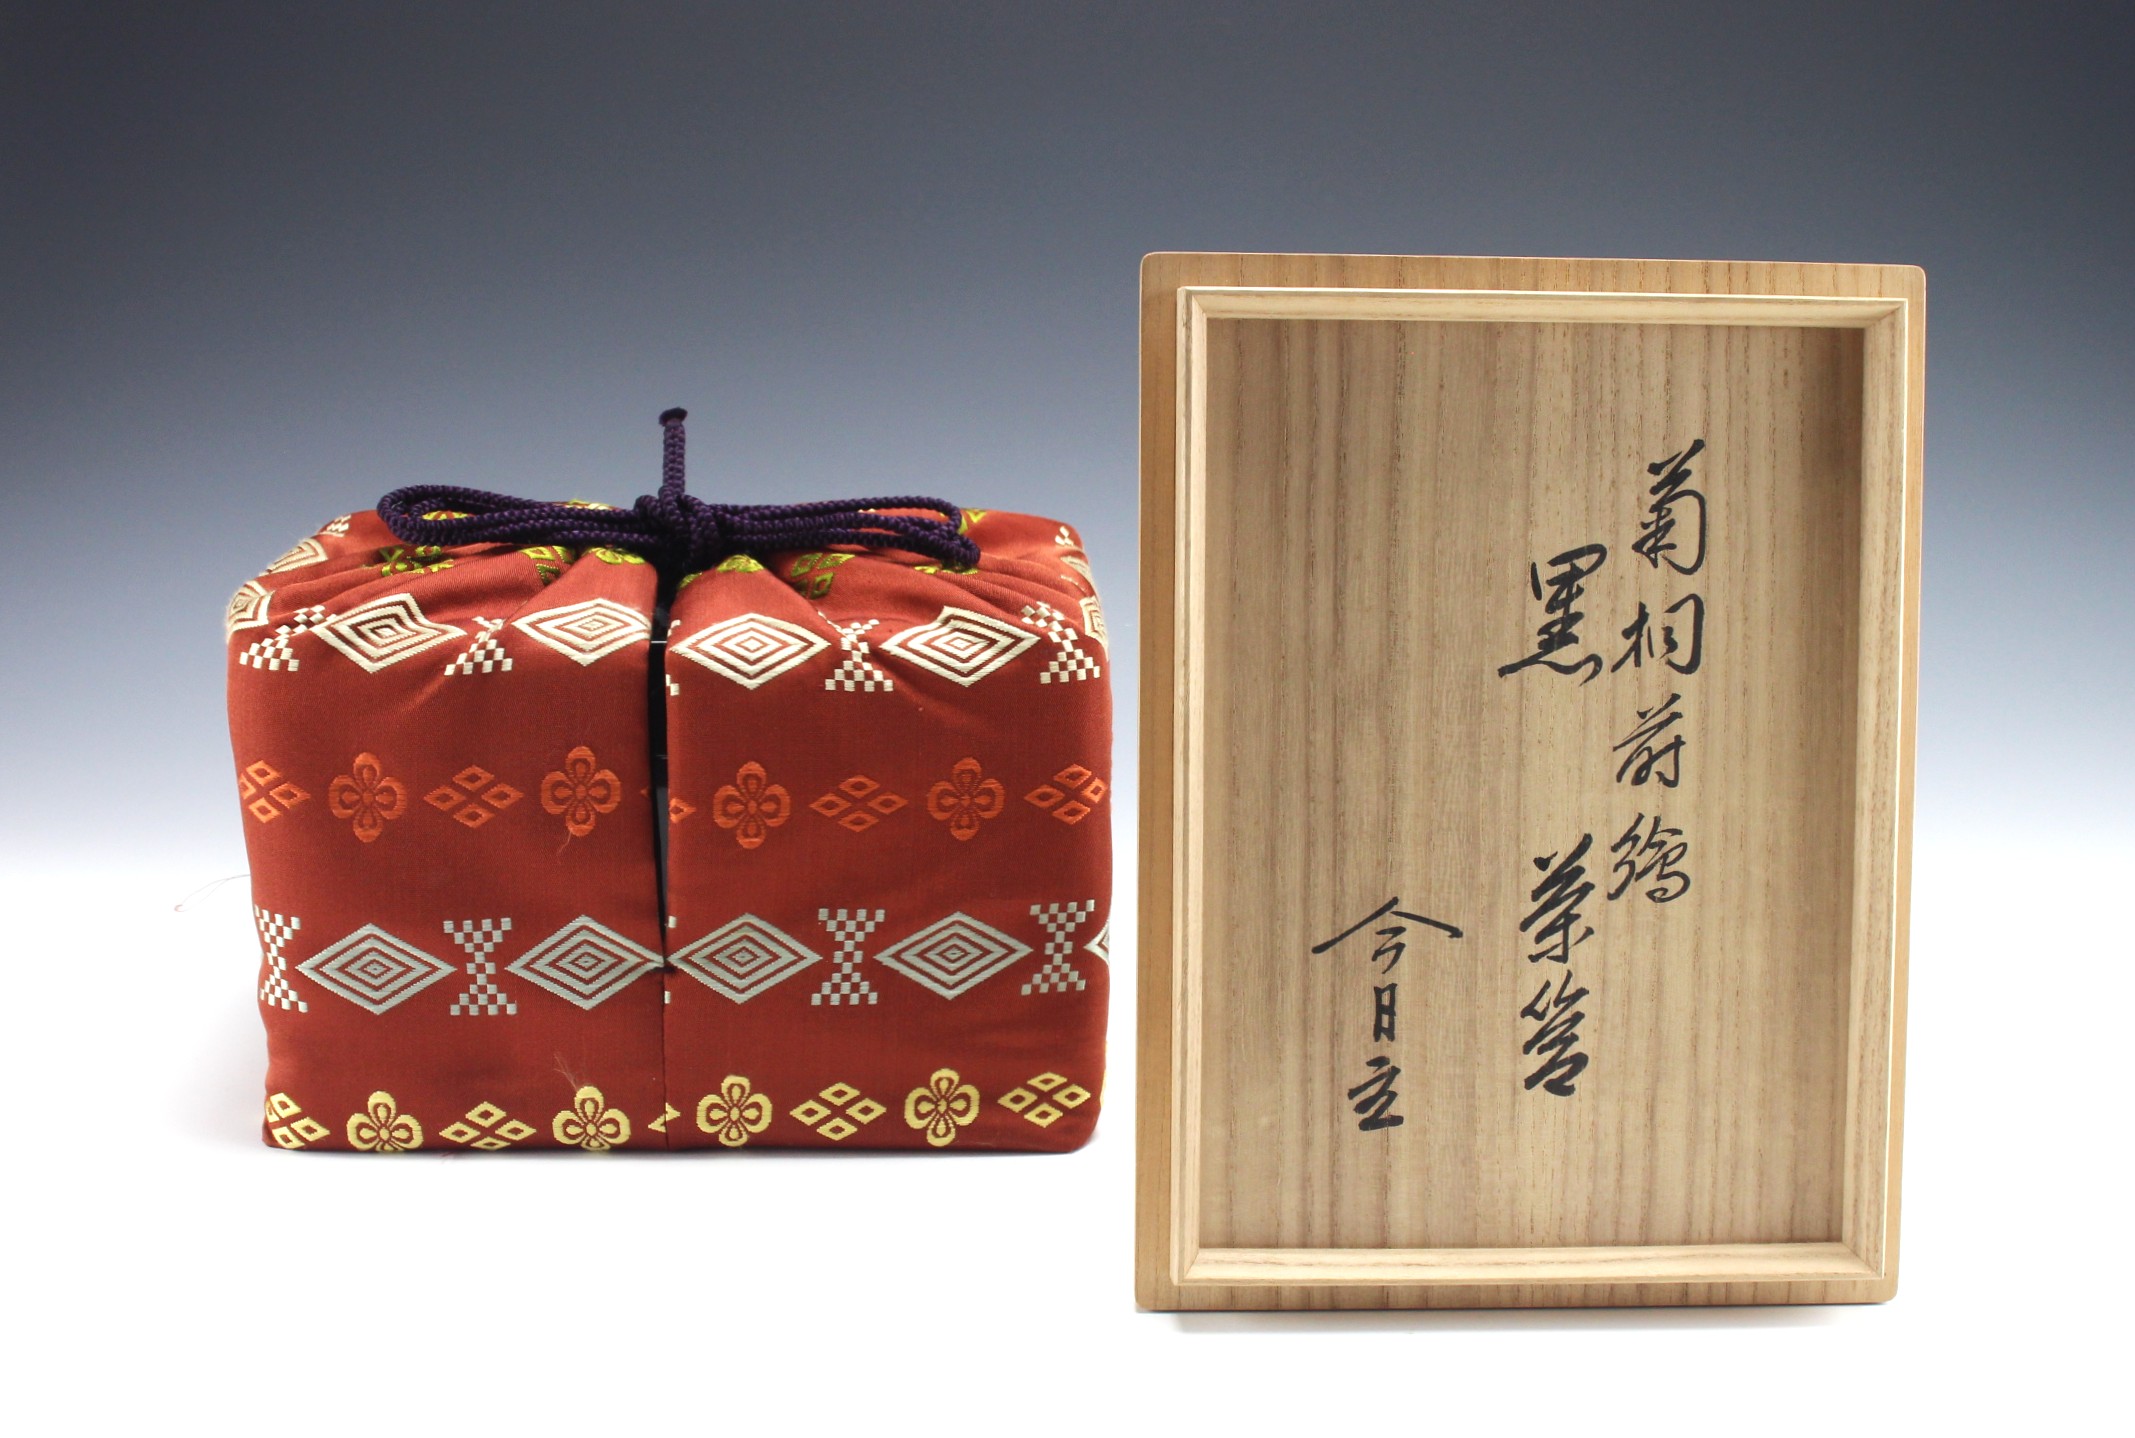 菊桐蒔繪
黒 茶箱
今日立